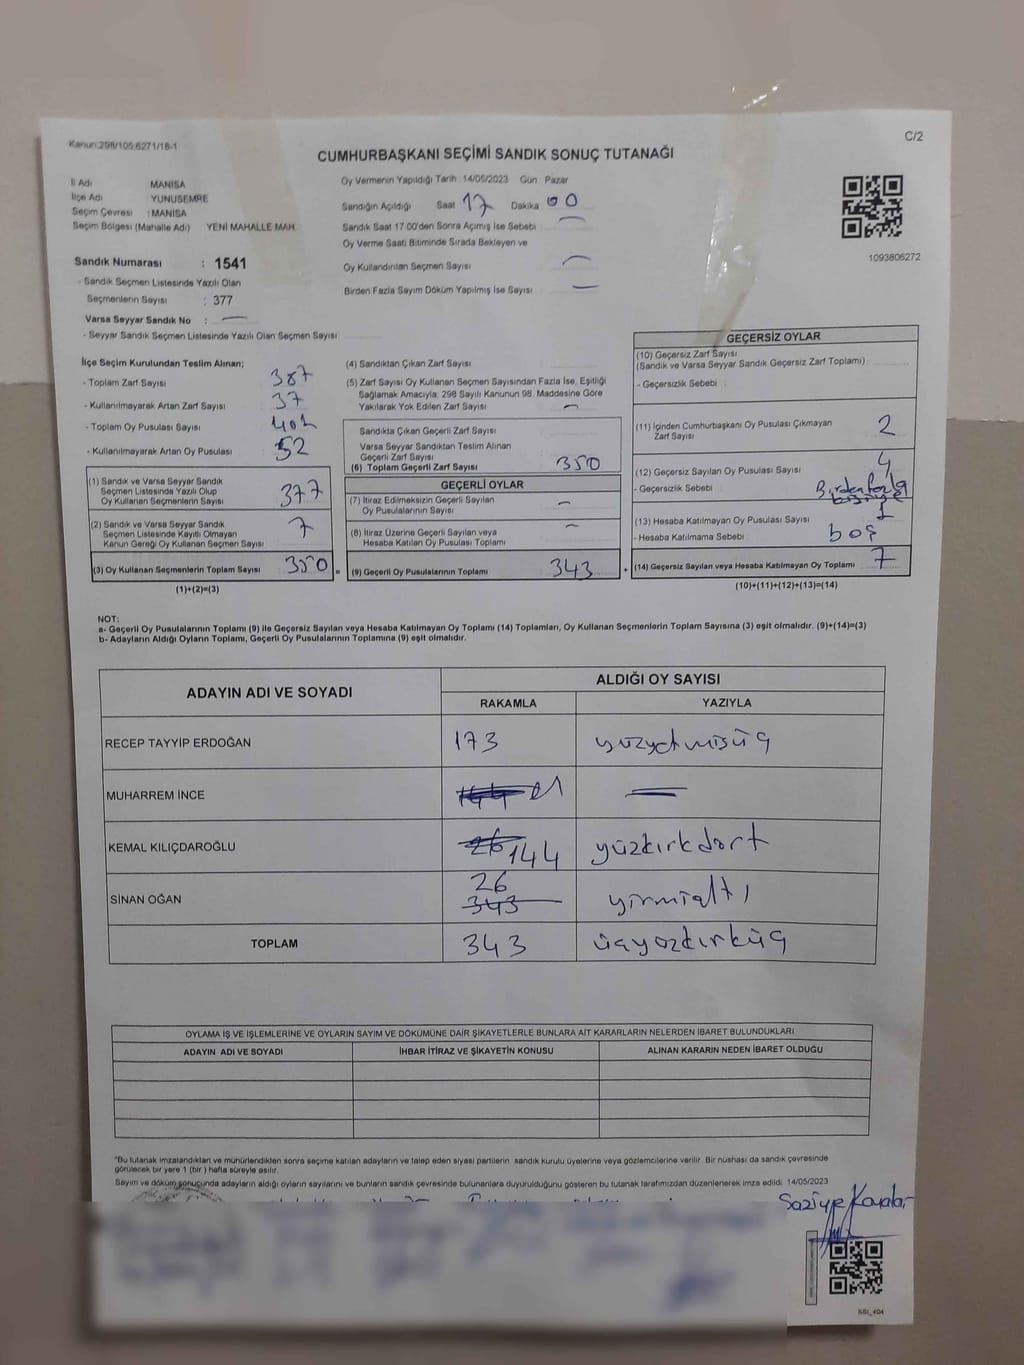 Kanun:298/105,6271/18-1
C/2
CUMHURBAŞKANI SEÇİMİ SANDIK SONUÇ TUTANAĞI
İl Adı MANİSA
İlçe Adı YUNUSEMRE
Seçim Çevresi : MANİSA
Seçim Bölgesi (Mahalle Adı) YENİ MAHALLE MAH.
Sandık Numarası : 1541
- Sandık Seçmen Listesinde Yazılı Olan
Seçmenlerin Sayısı : 377
Varsa Seyyar Sandık No : —
- Seyyar Sandık Seçmen Listesinde Yazılı Olan Seçmen Sayısı
Oy Vermenin Yapıldığı Tarih :14/05/2023 Gün : Pazar
Sandığın Açıldığı Saat 17 Dakika 00
Sandık Saat 17:00'den Sonra Açımış İse Sebebi —
Oy Verme Saati Bitiminde Sırada Bekleyen ve
Oy Kullandırılan Seçmen Sayısı —
Birden Fazla Sayım Döküm Yapılmış İse Sayısı —
1093806272
İlçe Seçim Kurulundan Teslim Alınan;
- Toplam Zarf Sayısı 387
- Kullanılmayarak Artan Zarf Sayısı 37
- Toplam Oy Pusulası Sayısı 402
- Kullanılmayarak Artan Oy Pusulası 52
(1) Sandık ve Varsa Seyyar Sandık
Seçmen Listesinde Yazılı Olup
Oy Kullanan Seçmenlerin Sayısı 377
(2) Sandık ve Varsa Seyyar Sandık
Seçmen Listesinde Kayıtlı Olmayan
Kanun Gereği Oy Kullanan Seçmen Sayısı 7
(3) Oy Kullanan Seçmenlerin Toplam Sayısı 350 =
(1)+(2)=(3)
(4) Sandıktan Çıkan Zarf Sayısı
(5) Zarf Sayısı Oy Kullanan Seçmen Sayısından Fazla İse, Eşitliği
Sağlamak Amacıyla; 298 Sayılı Kanunun 98. Maddesine Göre
Yakılarak Yok Edilen Zarf Sayısı —
Sandıkta Çıkan Geçerli Zarf Sayısı
Varsa Seyyar Sandıktan Teslim Alınan
Geçerli Zarf Sayısı
(6) Toplam Geçerli Zarf Sayısı 350
GEÇERLİ OYLAR
(7) İtiraz Edilmeksizin Geçerli Sayılan
Oy Pusulalarının Sayısı —
(8) İtiraz Üzerine Geçerli Sayılan veya
Hesaba Katılan Oy Pusulası Toplamı —
(9) Geçerli Oy Pusulalarının Toplamı 343 +
GEÇERSİZ OYLAR
(10) Geçersiz Zarf Sayısı
(Sandık ve Varsa Seyyar Sandık Geçersiz Zarf Toplamı)
- Geçersizlik Sebebi
(11) İçinden Cumhurbaşkanı Oy Pusulası Çıkmayan
Zarf Sayısı 2
(12) Geçersiz Sayılan Oy Pusulası Sayısı 4
- Geçersizlik Sebebi Birden fazla
(13) Hesaba Katılmayan Oy Pusulası Sayısı 1
- Hesaba Katılmama Sebebi boş
(14) Geçersiz Sayılan veya Hesaba Katılmayan Oy Toplamı 7
(10)+(11)+(12)+(13)=(14)
NOT:
a- Geçerli Oy Pusulalarının Toplamı (9) ile Geçersiz Sayılan veya Hesaba Katılmayan Oy Toplamı (14) Toplamları, Oy Kullanan Seçmenlerin Toplam Sayısına (3) eşit olmalıdır. (9)+(14)=(3)
b- Adayların Aldığı Oyların Toplamı, Geçerli Oy Pusulalarının Toplamına (9) eşit olmalıdır.
ADAYIN ADI VE SOYADI
ALDIĞI OY SAYISI
RAKAMLA YAZIYLA
RECEP TAYYİP ERDOĞAN 173 yüzyetmişüç
MUHARREM İNCE 144 —
KEMAL KILIÇDAROĞLU 26 144 yüzkırkdört
SİNAN OĞAN 26 343 yirmialtı
TOPLAM 343 üçyüzkırküç
OYLAMA İŞ VE İŞLEMLERİNE VE OYLARIN SAYIM VE DÖKÜMÜNE DAİR ŞİKAYETLERLE BUNLARA AİT KARARLARIN NELERDEN İBARET BULUNDUKLARI
ADAYIN ADI VE SOYADI İHBAR İTİRAZ VE ŞİKAYETİN KONUSU ALINAN KARARIN NEDEN İBARET OLDUĞU
"Bu tutanak imzalandıktan ve mühürlendikten sonra seçime katılan adayların ve talep eden siyasi partilerin sandık kurulu üyelerine veya gözlemcilerine verilir. Bir nüshası da sandık çevresinde
görülecek bir yere 1 (bir) hafta süreyle asılır.
Sayım ve döküm sonucunda adayların aldığı oyların sayılarını ve bunların sandık çevresinde bulunanlara duyurulduğunu gösteren bu tutanak tarafımızdan düzenlenerek imza edildi. 14/05/2023